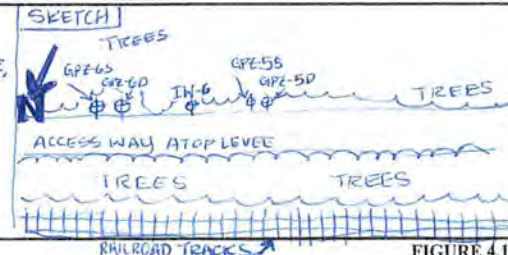 SKETCH
TREES
N
GPZ-6S
GPZ-6D
IW-6
GPZ-5S
GPZ-5D
TREES
ACCESS WAY ATOP LEVEE
TREES TREES
RAILROAD TRACKS
FIGURE 4.1